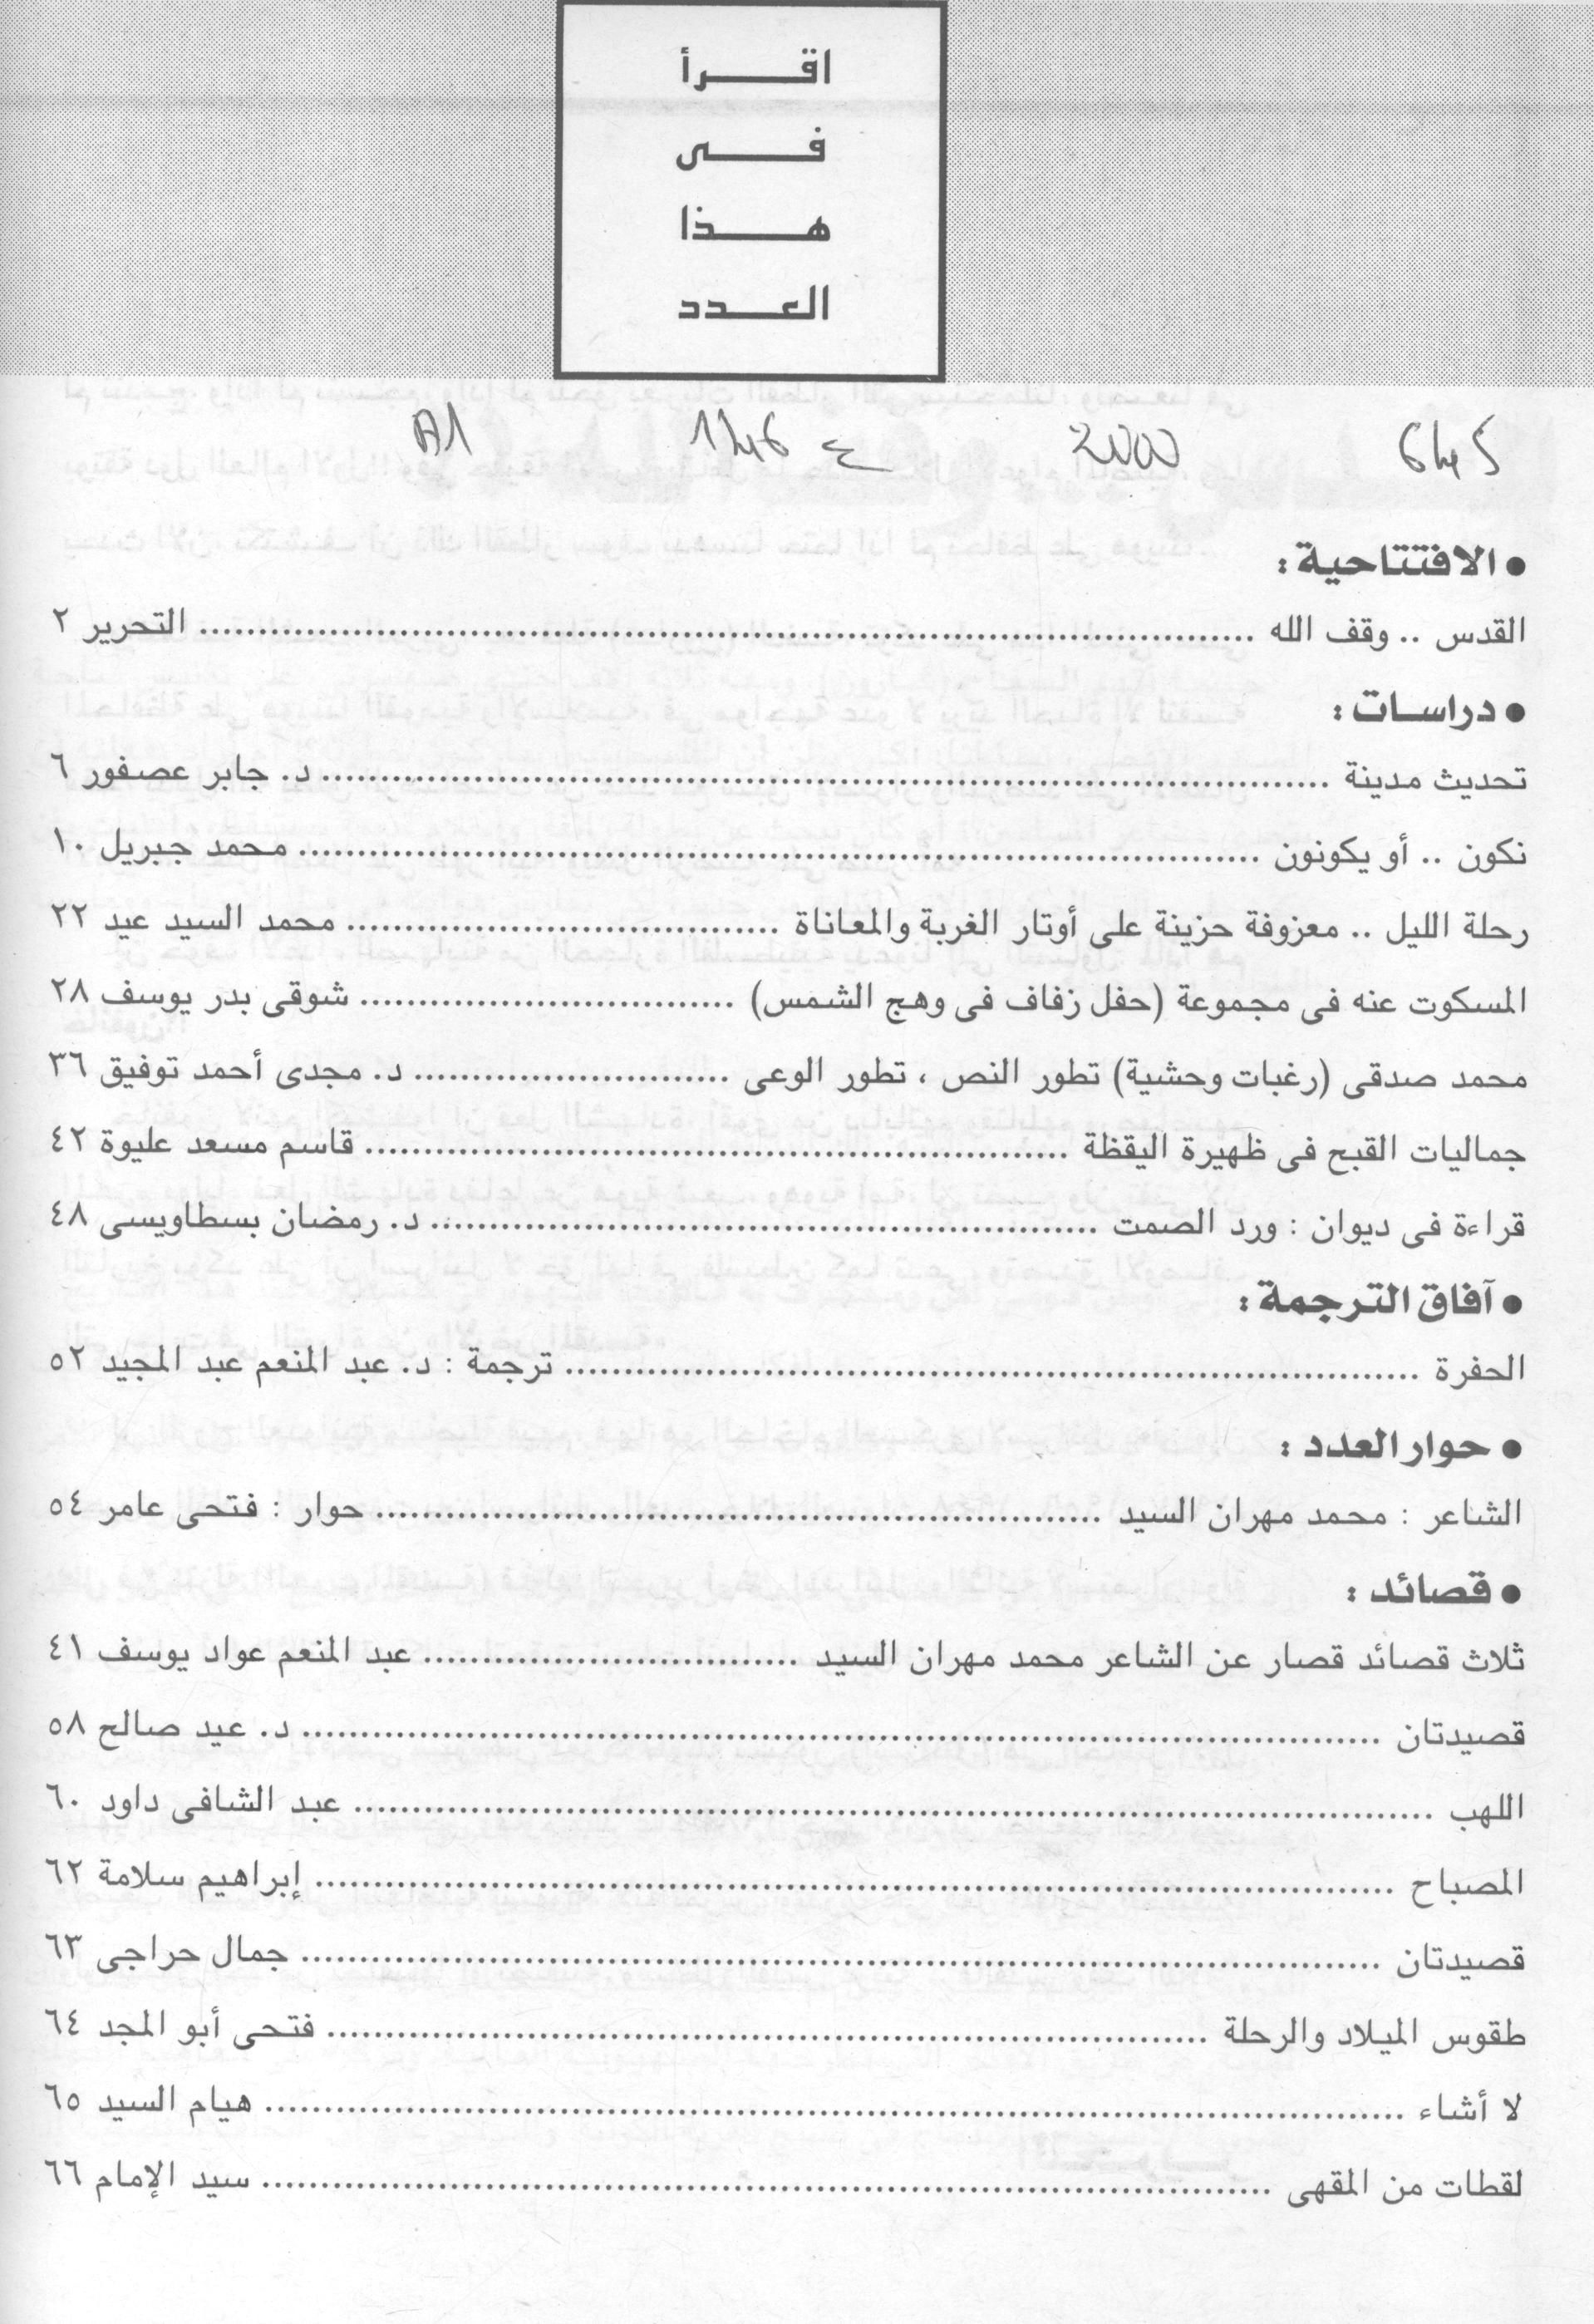 اقرأ
فى
هذا
العدد
645 2000 ع A1
● الافتتاحية :
القدس .. وقف الله ........ التحرير ٢
● دراسات :
تحديث مدينة ........ د. جابر عصفور ٦
نكون .. أو يكونون ........ محمد جبريل ١٠
رحلة الليل .. معزوفة حزينة على أوتار الغربة والمعاناة ........ محمد السيد عيد ٢٢
المسكوت عنه فى مجموعة (حفل زفاف فى وهج الشمس) ........ شوقى بدر يوسف ٢٨
محمد صدقى (رغبات وحشية) تطور النص ، تطور الوعى ........ د. مجدى أحمد توفيق ٣٦
جماليات القبح فى ظهيرة اليقظة ........ قاسم مسعد عليوة ٤٢
قراءة فى ديوان : ورد الصمت ........ د. رمضان بسطاويسى ٤٨
● آفاق الترجمة :
الحفرة ........ ترجمة : د. عبد المنعم عبد المجيد ٥٢
● حوار العدد :
الشاعر : محمد مهران السيد ........ حوار : فتحى عامر ٥٤
● قصائد :
ثلاث قصائد قصار عن الشاعر محمد مهران السيد ........ عبد المنعم عواد يوسف ٤١
قصيدتان ........ د. عيد صالح ٥٨
اللهب ........ عبد الشافى داود ٦٠
المصباح ........ إبراهيم سلامة ٦٢
قصيدتان ........ جمال حراجى ٦٣
طقوس الميلاد والرحلة ........ فتحى أبو المجد ٦٤
لا أشاء ........ هيام السيد ٦٥
لقطات من المقهى ........ سيد الإمام ٦٦